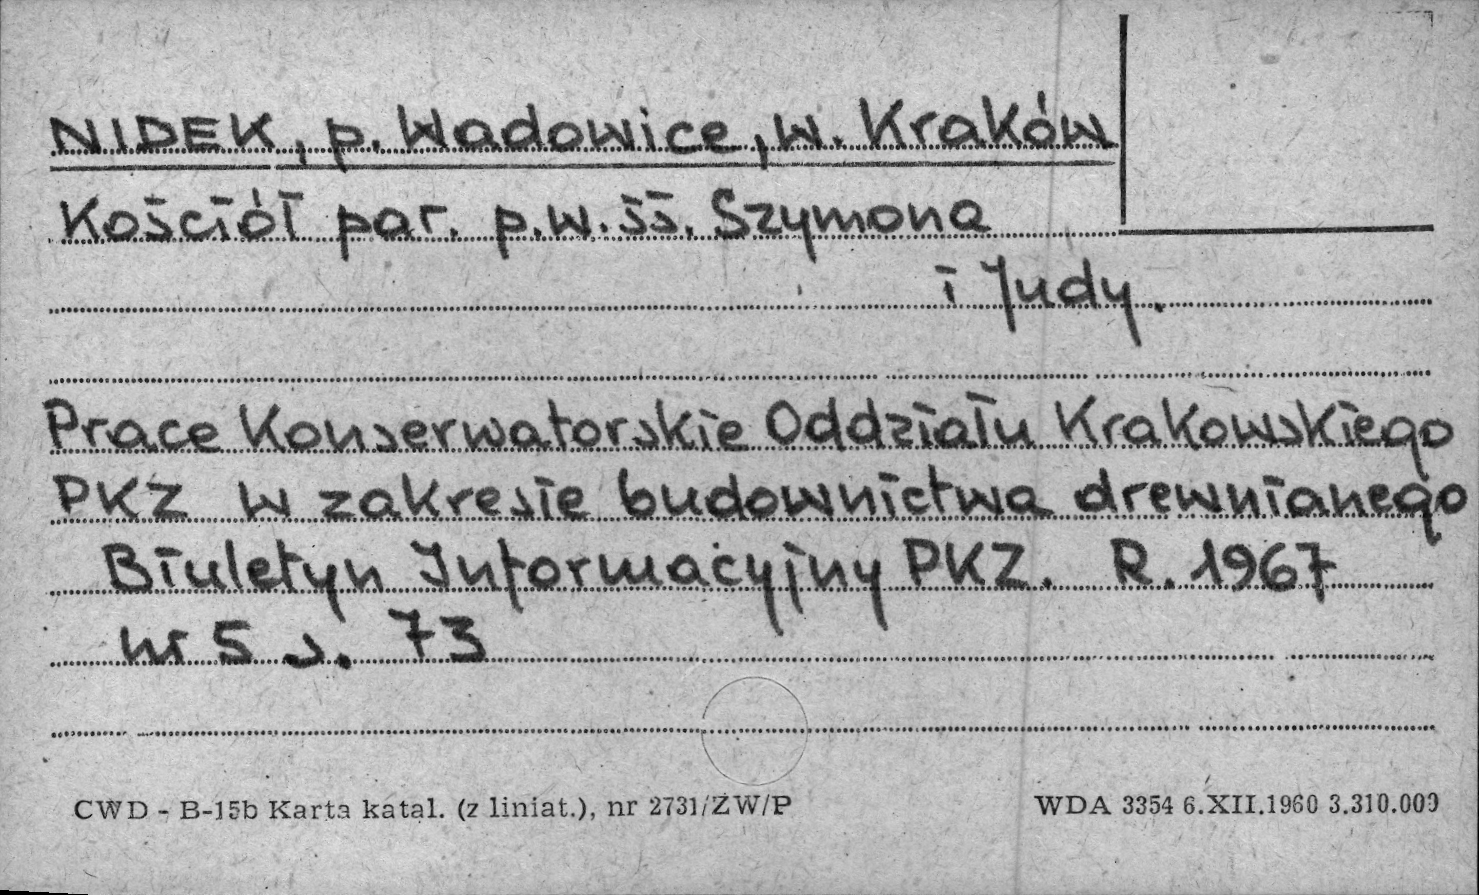 NIDEK, p. Wadowice, w. Kraków
Kościół par. p.w. śś. Szymona
i Judy.
Prace Konserwatorskie Oddziału Krakowskiego
PKZ w zakresie budownictwa drewnianego
Biuletyn Informacyjny PKZ. R. 1967
nr 5 s. 73
CWD - B-15b Karta katal. (z liniat.), nr 2731/ŻW/P
WDA 3354 6.XII.1960 3.310.000